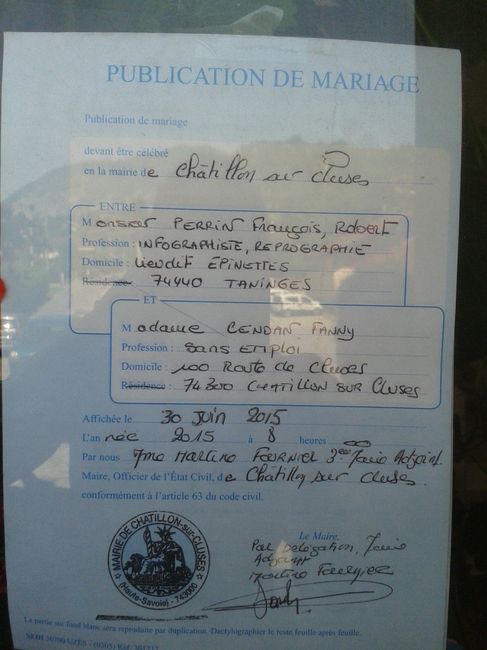 PUBLICATION DE MARIAGE
Publication de mariage
devant être célébré
en la mairie de Châtillon sur Cluses
ENTRE
Monsieur PERRIN François, Robert
Profession : INFOGRAPHISTE, REPROGRAPHIE
Domicile : Lieudit ÉPINETTES
Résidence : 74440 TANINGES
ET
Madame CENDAN FANNY
Profession : Sans EMPLOI
Domicile : 100 Route de Cluses
Résidence : 74300 CHATILLON SUR Cluses
Affichée le 30 Juin 2015
L'an née 2015 à 8 heures 00
Par nous Mme Martine FOURNIER 3ème Maire Adjoint
Maire, Officier de l'État Civil, de Châtillon sur Cluses.
conformément à l'article 63 du code civil.
MAIRIE DE CHATILLON-sur-CLUSES
(Haute-Savoie) - 743000
Le Maire,
Par Délégation, Maire
Adjoint
Martine Fournier
La partie sur fond blanc sera reproduite par duplication. Dactylographier le reste feuille après feuille.
SEDI 30700 UZÈS